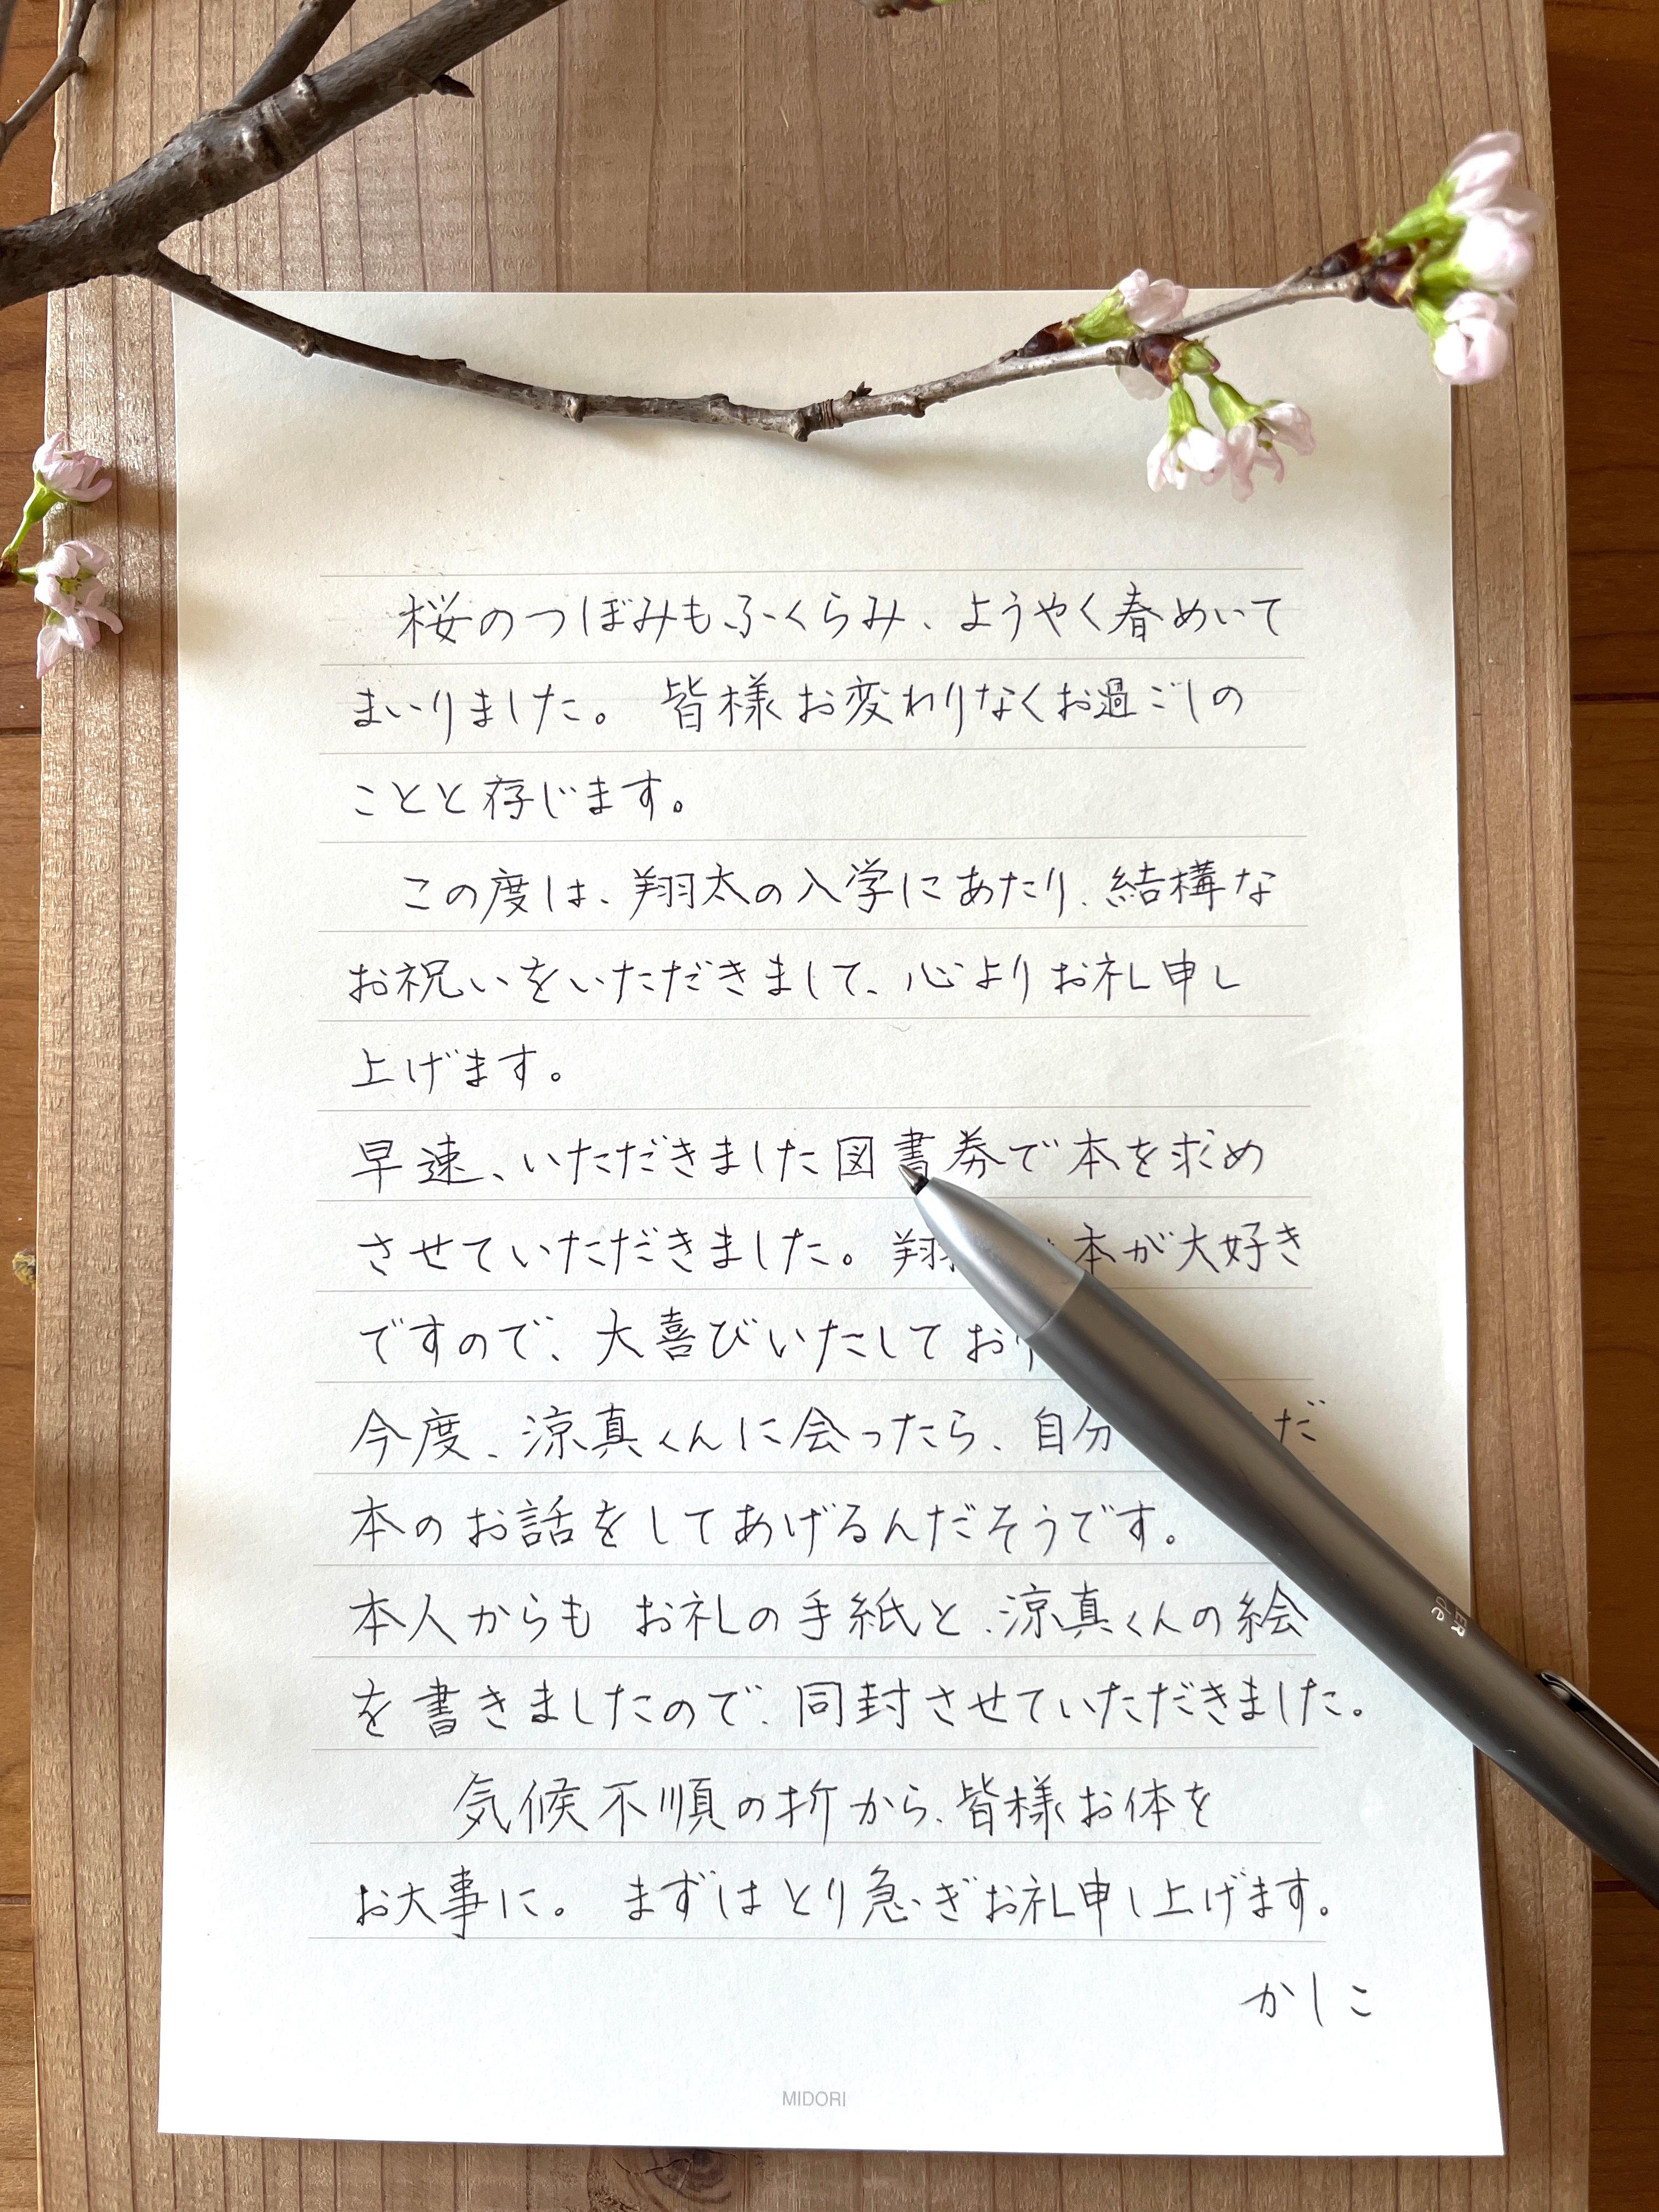 桜のつぼみもふくらみ、ようやく春めいて
まいりました。 皆様お変わりなくお過ごしの
ことと存じます。
この度は、翔太の入学にあたり、結構な
お祝いをいただきまして、心よりお礼申し
上げます。
早速、いただきました図書券で本を求め
させていただきました。翔 本が大好き
ですので、大喜びいたしており
今度、涼真くんに会ったら、自分 だ
本のお話をしてあげるんだそうです。
本人からも お礼の手紙と、涼真くんの絵
を書きましたので、同封させていただきました。
気候不順の折から、皆様お体を
お大事に。 まずはとり急ぎお礼申し上げます。
かしこ
MIDORI